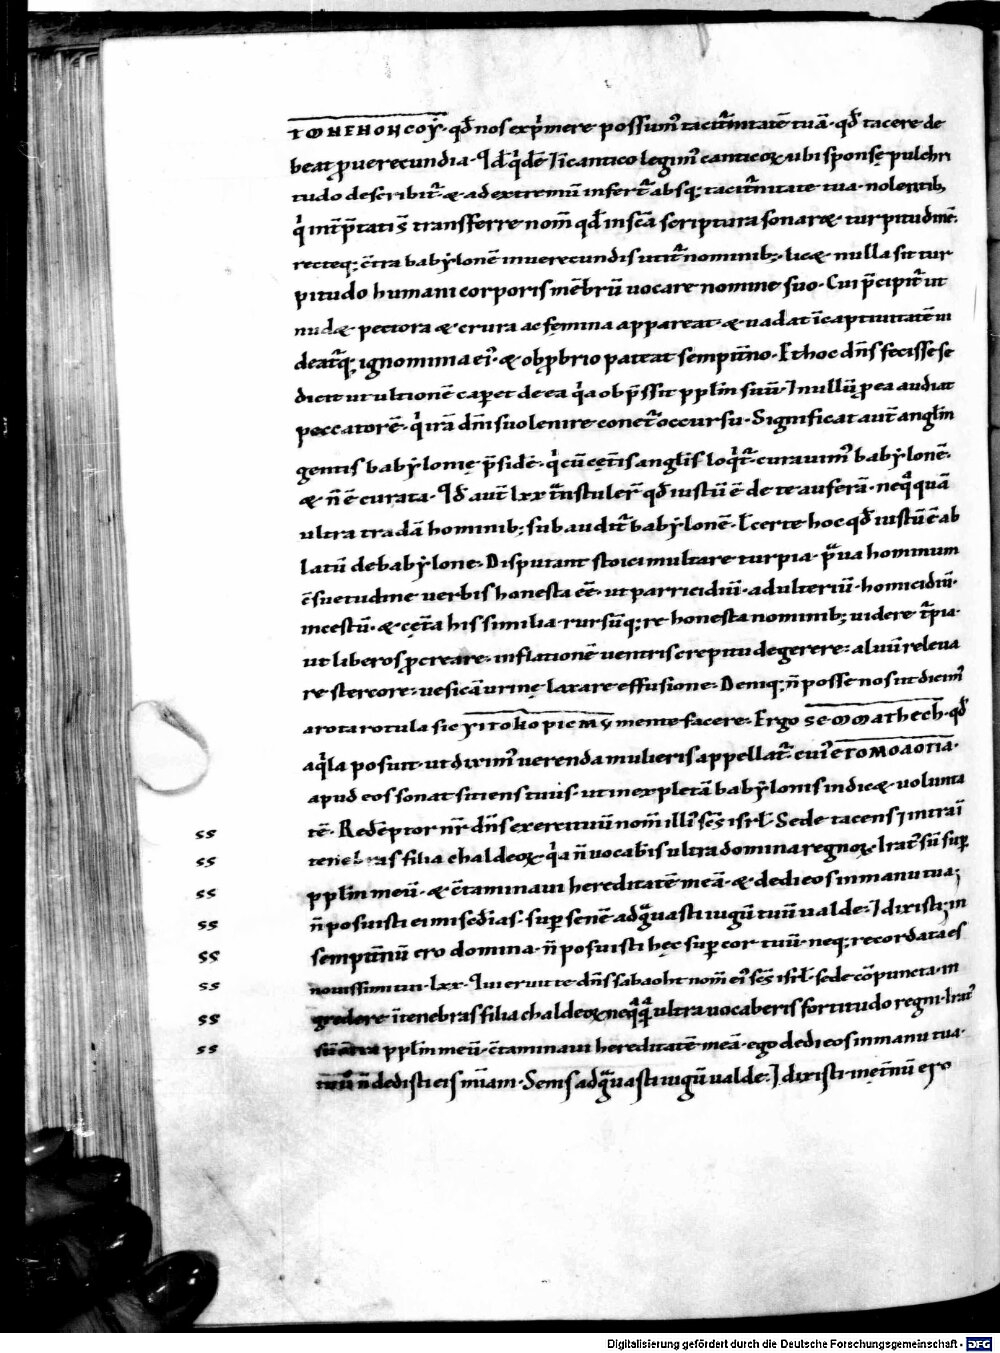 τωηεηοησογ· qđ nos exp̄mere possum᷒ taciturnitatē tuā· qđ tacere de
beat ꝑ uerecundia· Id q̄dē ī cantico legim᷒ canticoꝝ ubi sponsę pulchri
tudo describit᷑· & ad extremū infert᷑ absq; taciturnitate tua· nolentib;
q̄ int̄p̄tati s̄ transferre nom̄ qđ in scā scriptura sonar& turpitudinē·
recteq; c̄tra babylonē inuerecundis utit᷑ nominib; lic& nulla sit tur
pitudo humani corporis mēbrū uocare nomine suo· Cui p̄cipit᷑ ut
nud& pectora & crura ac femina appareat· & uadat ī captiuitatē ui
deat᷑q; ignominia ei᷒· & obprobrio pateat sempiterno· Et hoc dn̄s fecisse se
dicit ut ultionē caperet de ea q̄a obp̄ssit pplm̄ suū· I nullū ꝑ ea audiat
peccatorē· q̄ irā dn̄i suo lenire conet᷑ occursu· Significat aut̄ anglm̄
gentis babylonię p̄sidē· q̄ cū cęt̄is anglis loq̄t᷑· curauim᷒ babylonē·
& n̄ ē curata· Id aut̄ lxx transtuler̄ qđ iustū ē de te auferā· neq̄quā
ultra tradā hominib; subaudit᷑ babylonē· ł certe hoc qđ iustū ē ab
latū de babylone· Disputant stoici multa re turpia· praua hominum
c̄suetudine uerbis honesta eē· ut parricidiū· adulteriū· homicidiū·
incestū· & cęt̄a his similia· rursūq; re honesta nominib; uidere t᷑pia·
ut liberos ꝓcreare· inflationē uentris crepitu degerere· aluū releua
re stercore· uesicā urinę laxare effusione· Deniq; n̄ posse nos ut dicim᷒
a rota rotula sic γιτοκοριcμγ mente facere· Ergo semmathech· qđ
aq̄la posuit· ut dixim᷒ uerenda mulieris appellat᷑· cui᷒ ετομολοτια·
apud eos sonat sitiens tuus· ut inexpletā babylonis indic& uolunta
tē· Redēptor nr̄ dn̄s exercituū nom̄ illi᷒ scs̄ isrł· Sede tacens ⁊ intra ī
tenebras filia chaldeoꝝ· q̄a n̄ uocab̄is ultra domina regnoꝝ· Irat᷒ sū suꝑ
pplm̄ meū· & c̄taminaui hereditatē meā· & dedi eos in manu tua;
n̄ posuisti ei misedias· suꝑ senē adgrauasti iugū tuū ualde· I dixisti; in
sempit̄nū ero domina· n̄ posuisti hęc suꝑ cor tuū· neq; recordata es
nouissimi tui· lxx· I ui eruit te dn̄s sabaoht nom̄ ei᷒ scs̄ isrł· sede cōpuncta· in
gredere ī tenebras filia chaldeoꝝ neq̄q̄ ultra uocaberis fortitudo regni· Irat᷒
pplm̄ meū· c̄taminaui hereditatē meā· ego dedi eos in manu tua·
n̄ dedisti eis mīam· Senis adgrauasti iugū ualde· I dixisti· in et̄nū ero
ss
ss
ss
ss
ss
ss
ss
ss
Digitalisierung gefördert durch die Deutsche Forschungsgemeinschaft - DFG